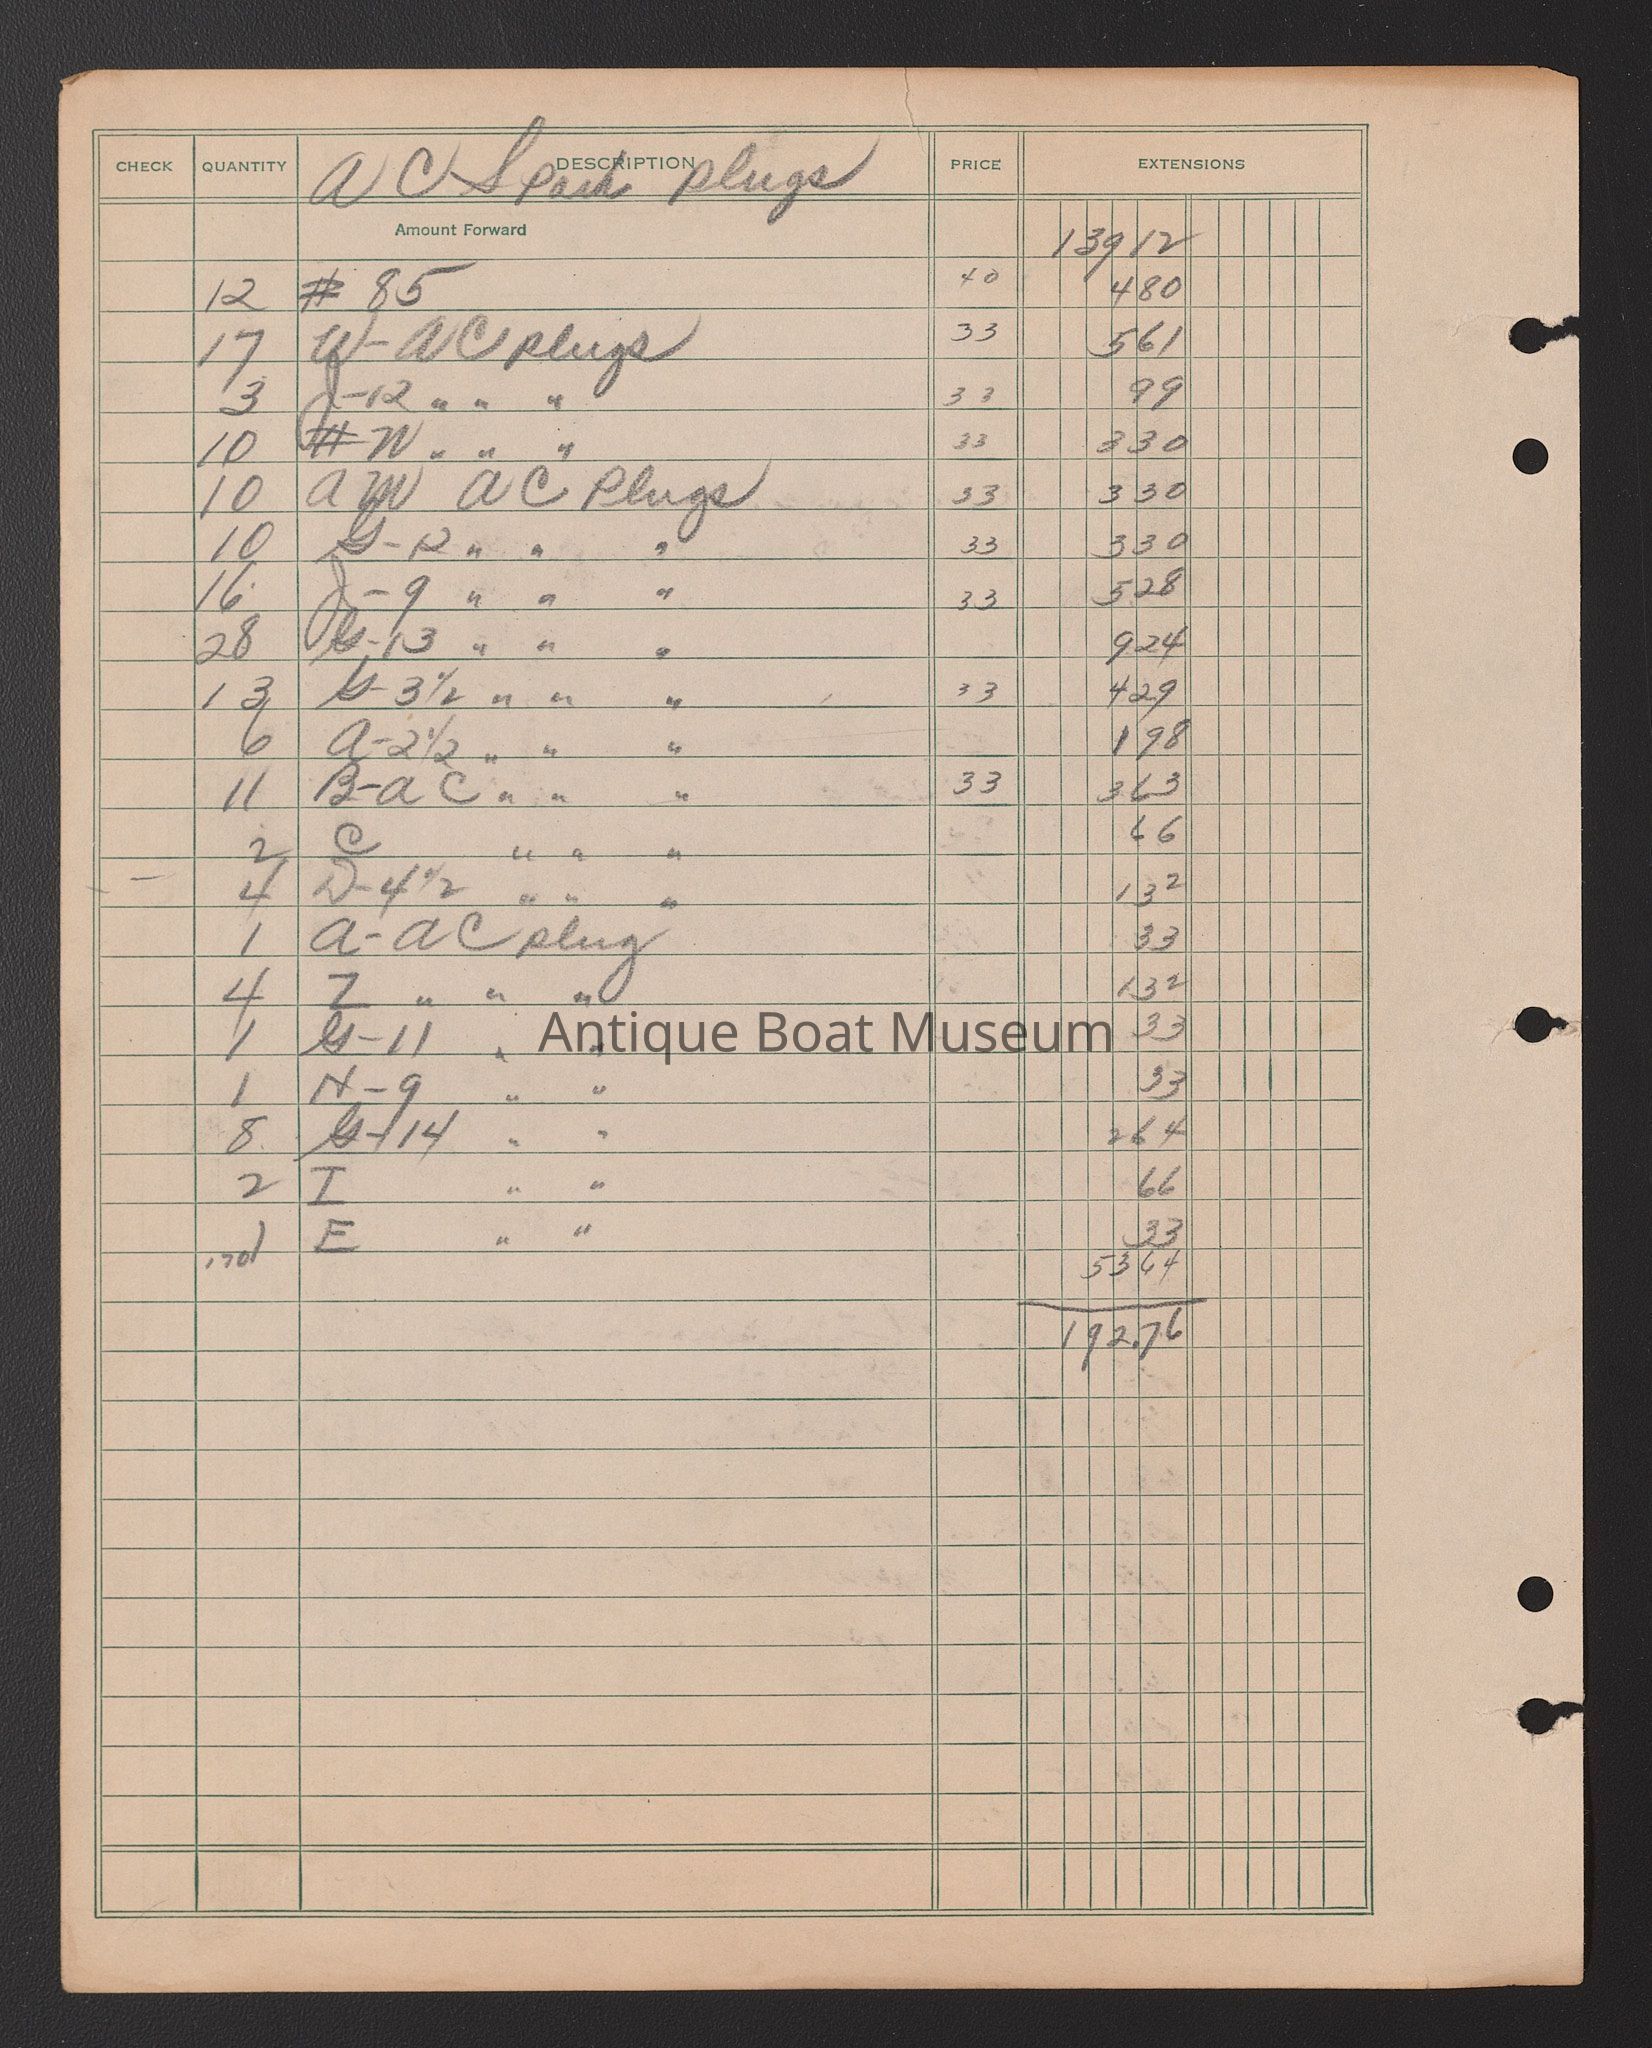 CHECK QUANTITY DESCRIPTION PRICE EXTENSIONS
AC Spark plugs
Amount Forward 139 12
12 # 85 40 4 80
17 W-AC plugs 33 5 61
3 J-12 " " " 33 99
10 #-W " " " 33 3 30
10 AM AC Plugs 33 3 30
10 G-12 " " " 33 3 30
16 J-9 " " " 33 5 28
28 G-13 " " " 9 24
13 G-3 1/2 " " " 33 4 29
6 A-2 1/2 " " " 1 98
11 B-AC " " " 33 3 63
2 C " " " 66
4 D-4 1/2 " " " 1 32
1 A-AC plug 33
4 Z " " " 1 32
1 G-11 " " 33
1 H-9 " " 33
8 G-14 " " 2 64
2 I " " 66
1 E " " 33
170 53 64
192.76
Antique Boat Museum